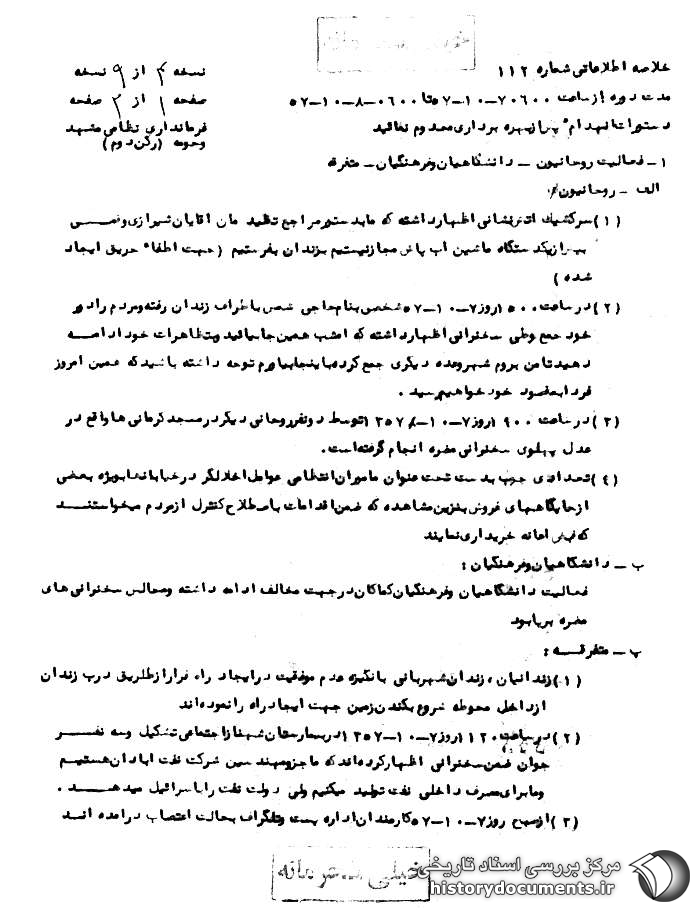 خیلی محرمانه
خلاصه اطلاعاتی شماره ۱۱۲
نسخه ۴ از ۹ نسخه
مدت دوره از ساعت ۰۶۰۰ ۷-۱۰-۵۷ تا ۰۶۰۰ ۸-۱۰-۵۷
صفحه ۱ از ۲ صفحه
دستورات انهدام: پس از بهره برداری معدوم نمائید
فرمانداری نظامی مشهد
وحومه (رکن دوم)
۱- فعالیت روحانیون - دانشگاهیان و فرهنگیان - متفرقه
الف - روحانیون:
(۱) سرکشیک اتشنشانی اظهار داشته که ما بدستور مراجع تقلید مان اقایان شیرازی و قمی
بیس از یکدستگاه ماشین اب پاش مجاز نیستیم بزندان بفرستیم (جهت اطفاء حریق ایجاد
شده)
(۲) در ساعت ۱۵۰۰ روز ۷-۱۰-۵۷ شخصی بنام حاجی شمس باطراف زندان رفته و مردم را دور
خود جمع وطی سخنرانی اظهار داشته که امشب همین جا بمانید و بتظاهرات خود ادامه
دهید تا من بروم شهر وعده دیگری جمع کرده باینجا بیاورم توجه داشته باشید که همین امروز
فردا بمقصود خود خواهیم رسید .
(۳) در ساعت ۱۹۰۰ روز ۷-۱۰-۱۳۵۷ توسط دو نفر روحانی دیگر در مسجد کرمانی ها واقع در
عدل پهلوی سخنرانی مضره انجام گرفته است.
(۴) تعدادی چوب بدست تحت عنوان ماموران انتظامی عوامل اخلالگر در خیابانها بویژه بعضی
از جایگاههای فروش بنزین مشاهده که ضمن اقدامات باصطلاح کنترل از مردم میخواستند
که قبض اعانه خریداری نمایند
ب - دانشگاهیان و فرهنگیان :
فعالیت دانشگاهیان و فرهنگیان کماکان در جهت مخالف ادامه داشته و مجالس سخنرانی های
مضره برپا بود
پ - متفرقه :
(۱) زندانیان، زندان شهربانی بانگیزه عدم موفقیت در ایجاد راه فرار از طریق درب زندان
از داخل محوطه شروع بکندن زمین جهت ایجاد راه را نموده اند
(۲) در ساعت ۱۱۲۰ روز ۷-۱۰-۱۳۵۷ در بیمارستان شهناز اجتماعی تشکیل و سه نفر
جوان ضمن سخنرانی اظهار کرده اند که ما جزو مهندسین شرکت نفت ابادان هستیم
و ما برای مصرف داخلی نفت تولید میکنیم ولی دولت نفت را باسرائیل میدهد .
(۳) از صبح روز ۷-۱۰-۵۷ کارمندان اداره پست و تلگراف بحالت اعتصاب درامده اند
خیلی محرمانه
مرکز بررسی اسناد تاریخی
historydocuments.ir